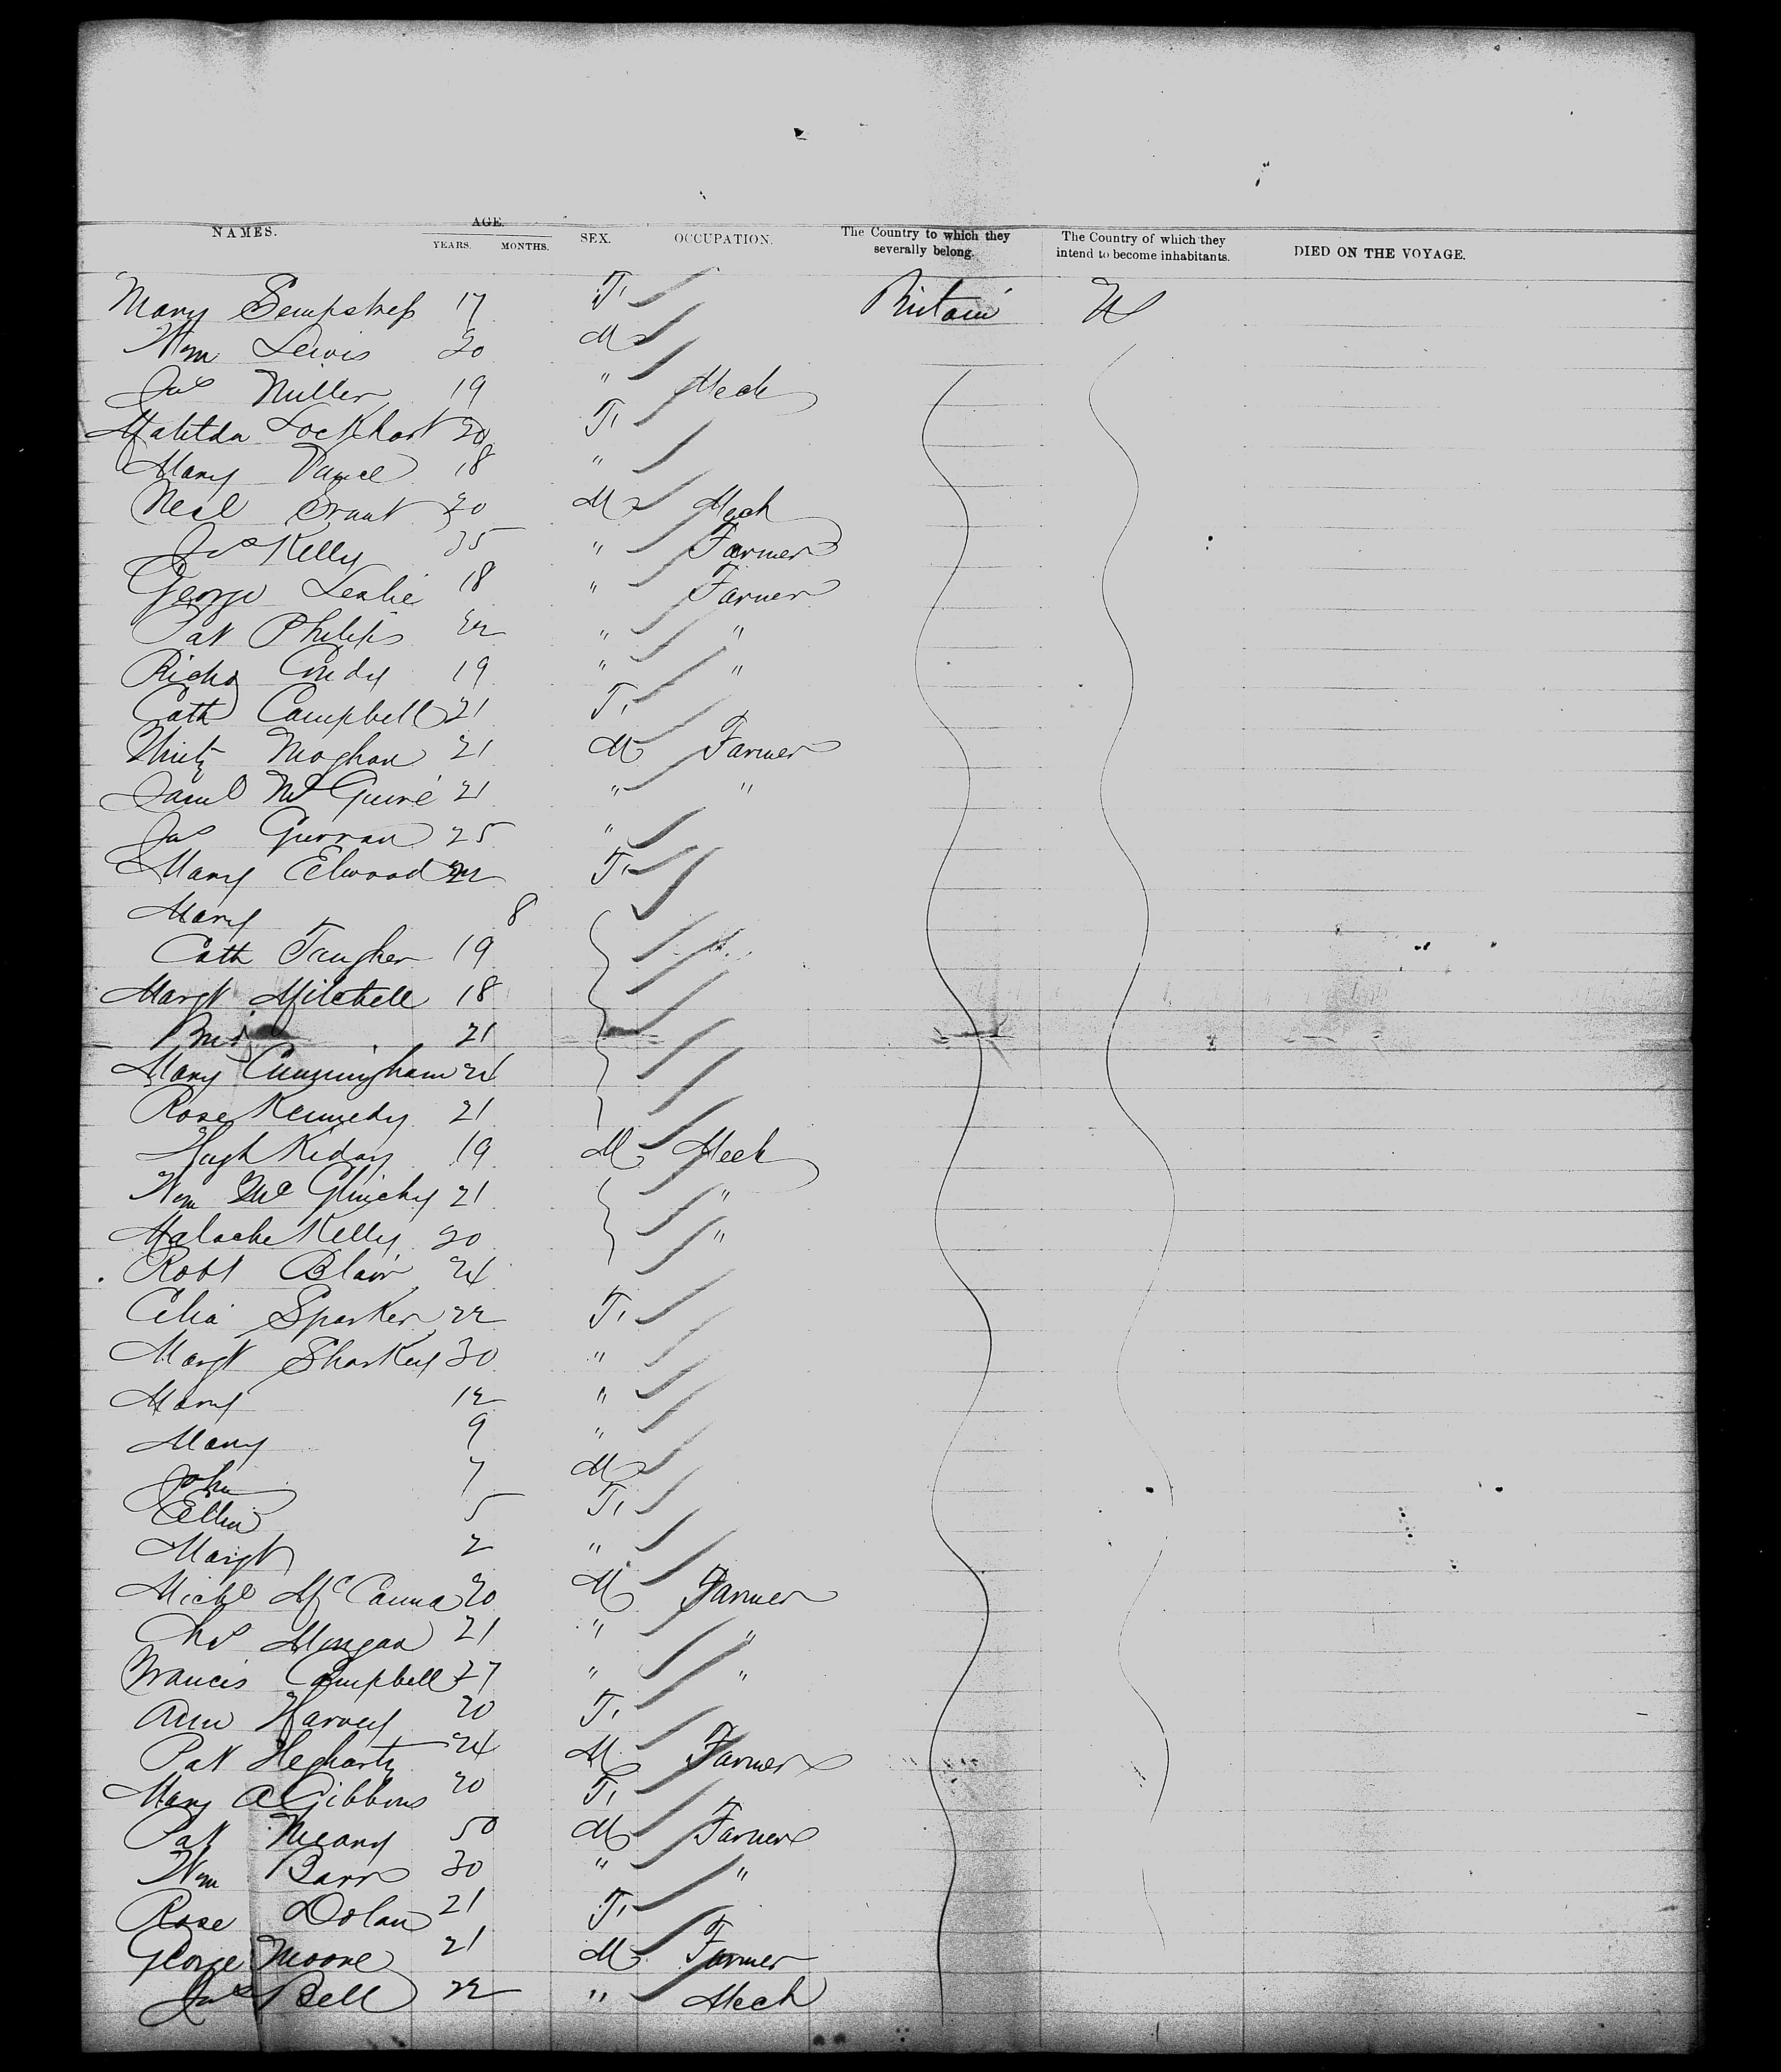 NAMES. AGE. YEARS. MONTHS. SEX. OCCUPATION. The Country to which they severally belong. The Country of which they intend to become inhabitants. DIED ON THE VOYAGE.
Mary 17 F Britain US
Wm Lewis 20 M
Jas Miller 19 " Mech
Matilda Lockhart 20 F
Mary Vance 18 "
Neal Grant 20 M Mech
Jas Kelly 35 " Farmer
George Leslie 18 " Farmer
Pat Philips 22 " "
Richd 19 " "
Cath Campbell 21 F
Moghan 21 M Farmer
McGuire 21 " "
Jas Gurran 25 "
Mary Elwood 22 F
Mary 8
Cath Taugher 19
Margt Mitchell 18
21
Mary Cunningham 24
Rose Kennedy 21
Hugh 19 M Mech
Wm McGlinchy 21 "
Malache Kelly 20 "
Robt Blair 24
Celia Sparker 22 F
Margt Sharkey 30 "
Mary 12 "
Mary 9 "
John 7 M
Ellen 5 F
Margt 2 "
Michl McCanna 20 M Farmer
Thos Morgan 21 " "
Francis Campbell 27 " "
Ann Harvey 20 F
Pat Hegharty 24 M Farmer
Mary A Gibbons 20 F
Pat Meany 50 M Farmer
Wm Barr 30 " "
Rose Dolan 21 F
George Moore 21 M Farmer
Jas Bell 22 " Mech